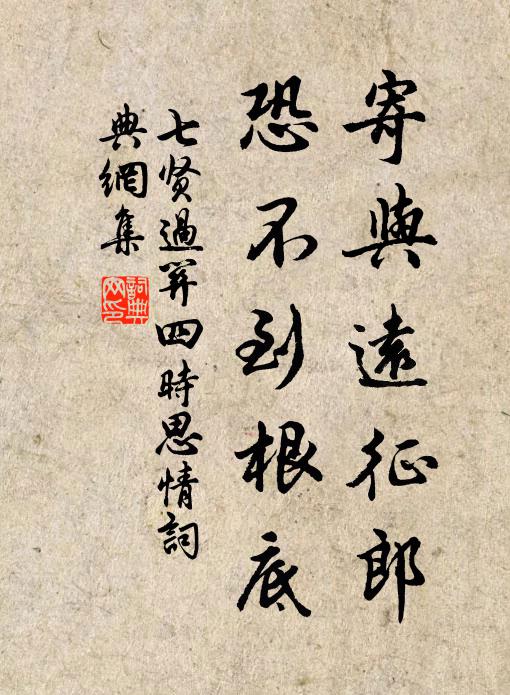 寄與遠征郎
恐不到根底
七贤過関四時思情詞
典網集
詞典網印